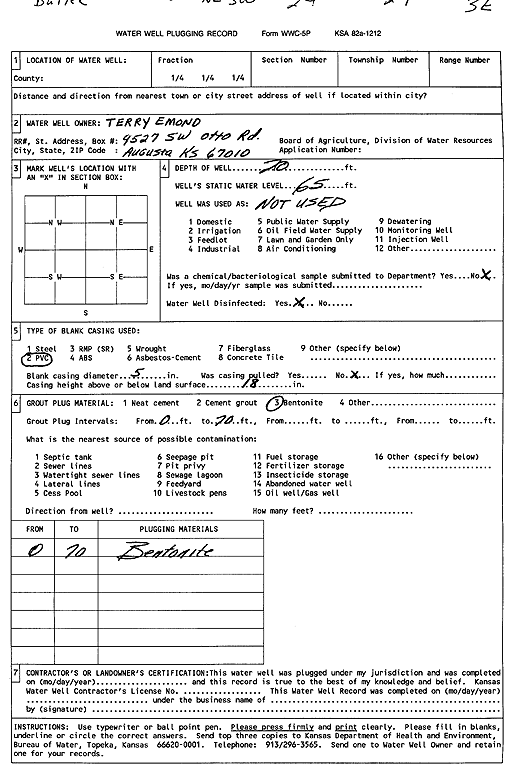 Butler NE SW 29 29 3E
WATER WELL PLUGGING RECORD Form WWC-5P KSA 82a-1212
1 LOCATION OF WATER WELL: Fraction Section Number Township Number Range Number
County: 1/4 1/4 1/4
Distance and direction from nearest town or city street address of well if located within city?
2 WATER WELL OWNER: TERRY EMOND
RR#, St. Address, Box #: 9527 SW Otto Rd. Board of Agriculture, Division of Water Resources
City, State, ZIP Code : Augusta KS 67010 Application Number:
3 MARK WELL'S LOCATION WITH AN "X" IN SECTION BOX:
N
N W N E
W E
S W S E
S
4 DEPTH OF WELL......70......ft.
WELL'S STATIC WATER LEVEL...65....ft.
WELL WAS USED AS: NOT USED
1 Domestic 5 Public Water Supply 9 Dewatering
2 Irrigation 6 Oil Field Water Supply 10 Monitoring Well
3 Feedlot 7 Lawn and Garden Only 11 Injection Well
4 Industrial 8 Air Conditioning 12 Other..................
Was a chemical/bacteriological sample submitted to Department? Yes....No X..
If yes, mo/day/yr sample was submitted......................
Water Well Disinfected: Yes.X.. No......
5 TYPE OF BLANK CASING USED:
1 Steel 3 RMP (SR) 5 Wrought 7 Fiberglass 9 Other (specify below)
2 PVC 4 ABS 6 Asbestos-Cement 8 Concrete Tile ............................
Blank casing diameter...5......in. Was casing pulled? Yes...... No.X... If yes, how much..........
Casing height above or below land surface........18........in.
6 GROUT PLUG MATERIAL: 1 Neat cement 2 Cement grout 3 Bentonite 4 Other...................
Grout Plug Intervals: From.0..ft. to.70..ft., From......ft. to ......ft., From...... to......ft.
What is the nearest source of possible contamination:
1 Septic tank 6 Seepage pit 11 Fuel storage 16 Other (specify below)
2 Sewer lines 7 Pit privy 12 Fertilizer storage ......................
3 Watertight sewer lines 8 Sewage lagoon 13 Insecticide storage
4 Lateral lines 9 Feedyard 14 Abandoned water well
5 Cess Pool 10 Livestock pens 15 Oil well/Gas well
Direction from well? ...................... How many feet? ......................
FROM TO PLUGGING MATERIALS
0 70 Bentonite
7 CONTRACTOR'S OR LANDOWNER'S CERTIFICATION: This water well was plugged under my jurisdiction and was completed
on (mo/day/year)...................... and this record is true to the best of my knowledge and belief. Kansas
Water Well Contractor's License No. .................. This Water Well Record was completed on (mo/day/year)
............................ under the business name of ..............................................
by (signature) ..............................................
INSTRUCTIONS: Use typewriter or ball point pen. Please press firmly and print clearly. Please fill in blanks,
underline or circle the correct answers. Send top three copies to Kansas Department of Health and Environment,
Bureau of Water, Topeka, Kansas 66620-0001. Telephone: 913/296-3565. Send one to Water Well Owner and retain
one for your records.